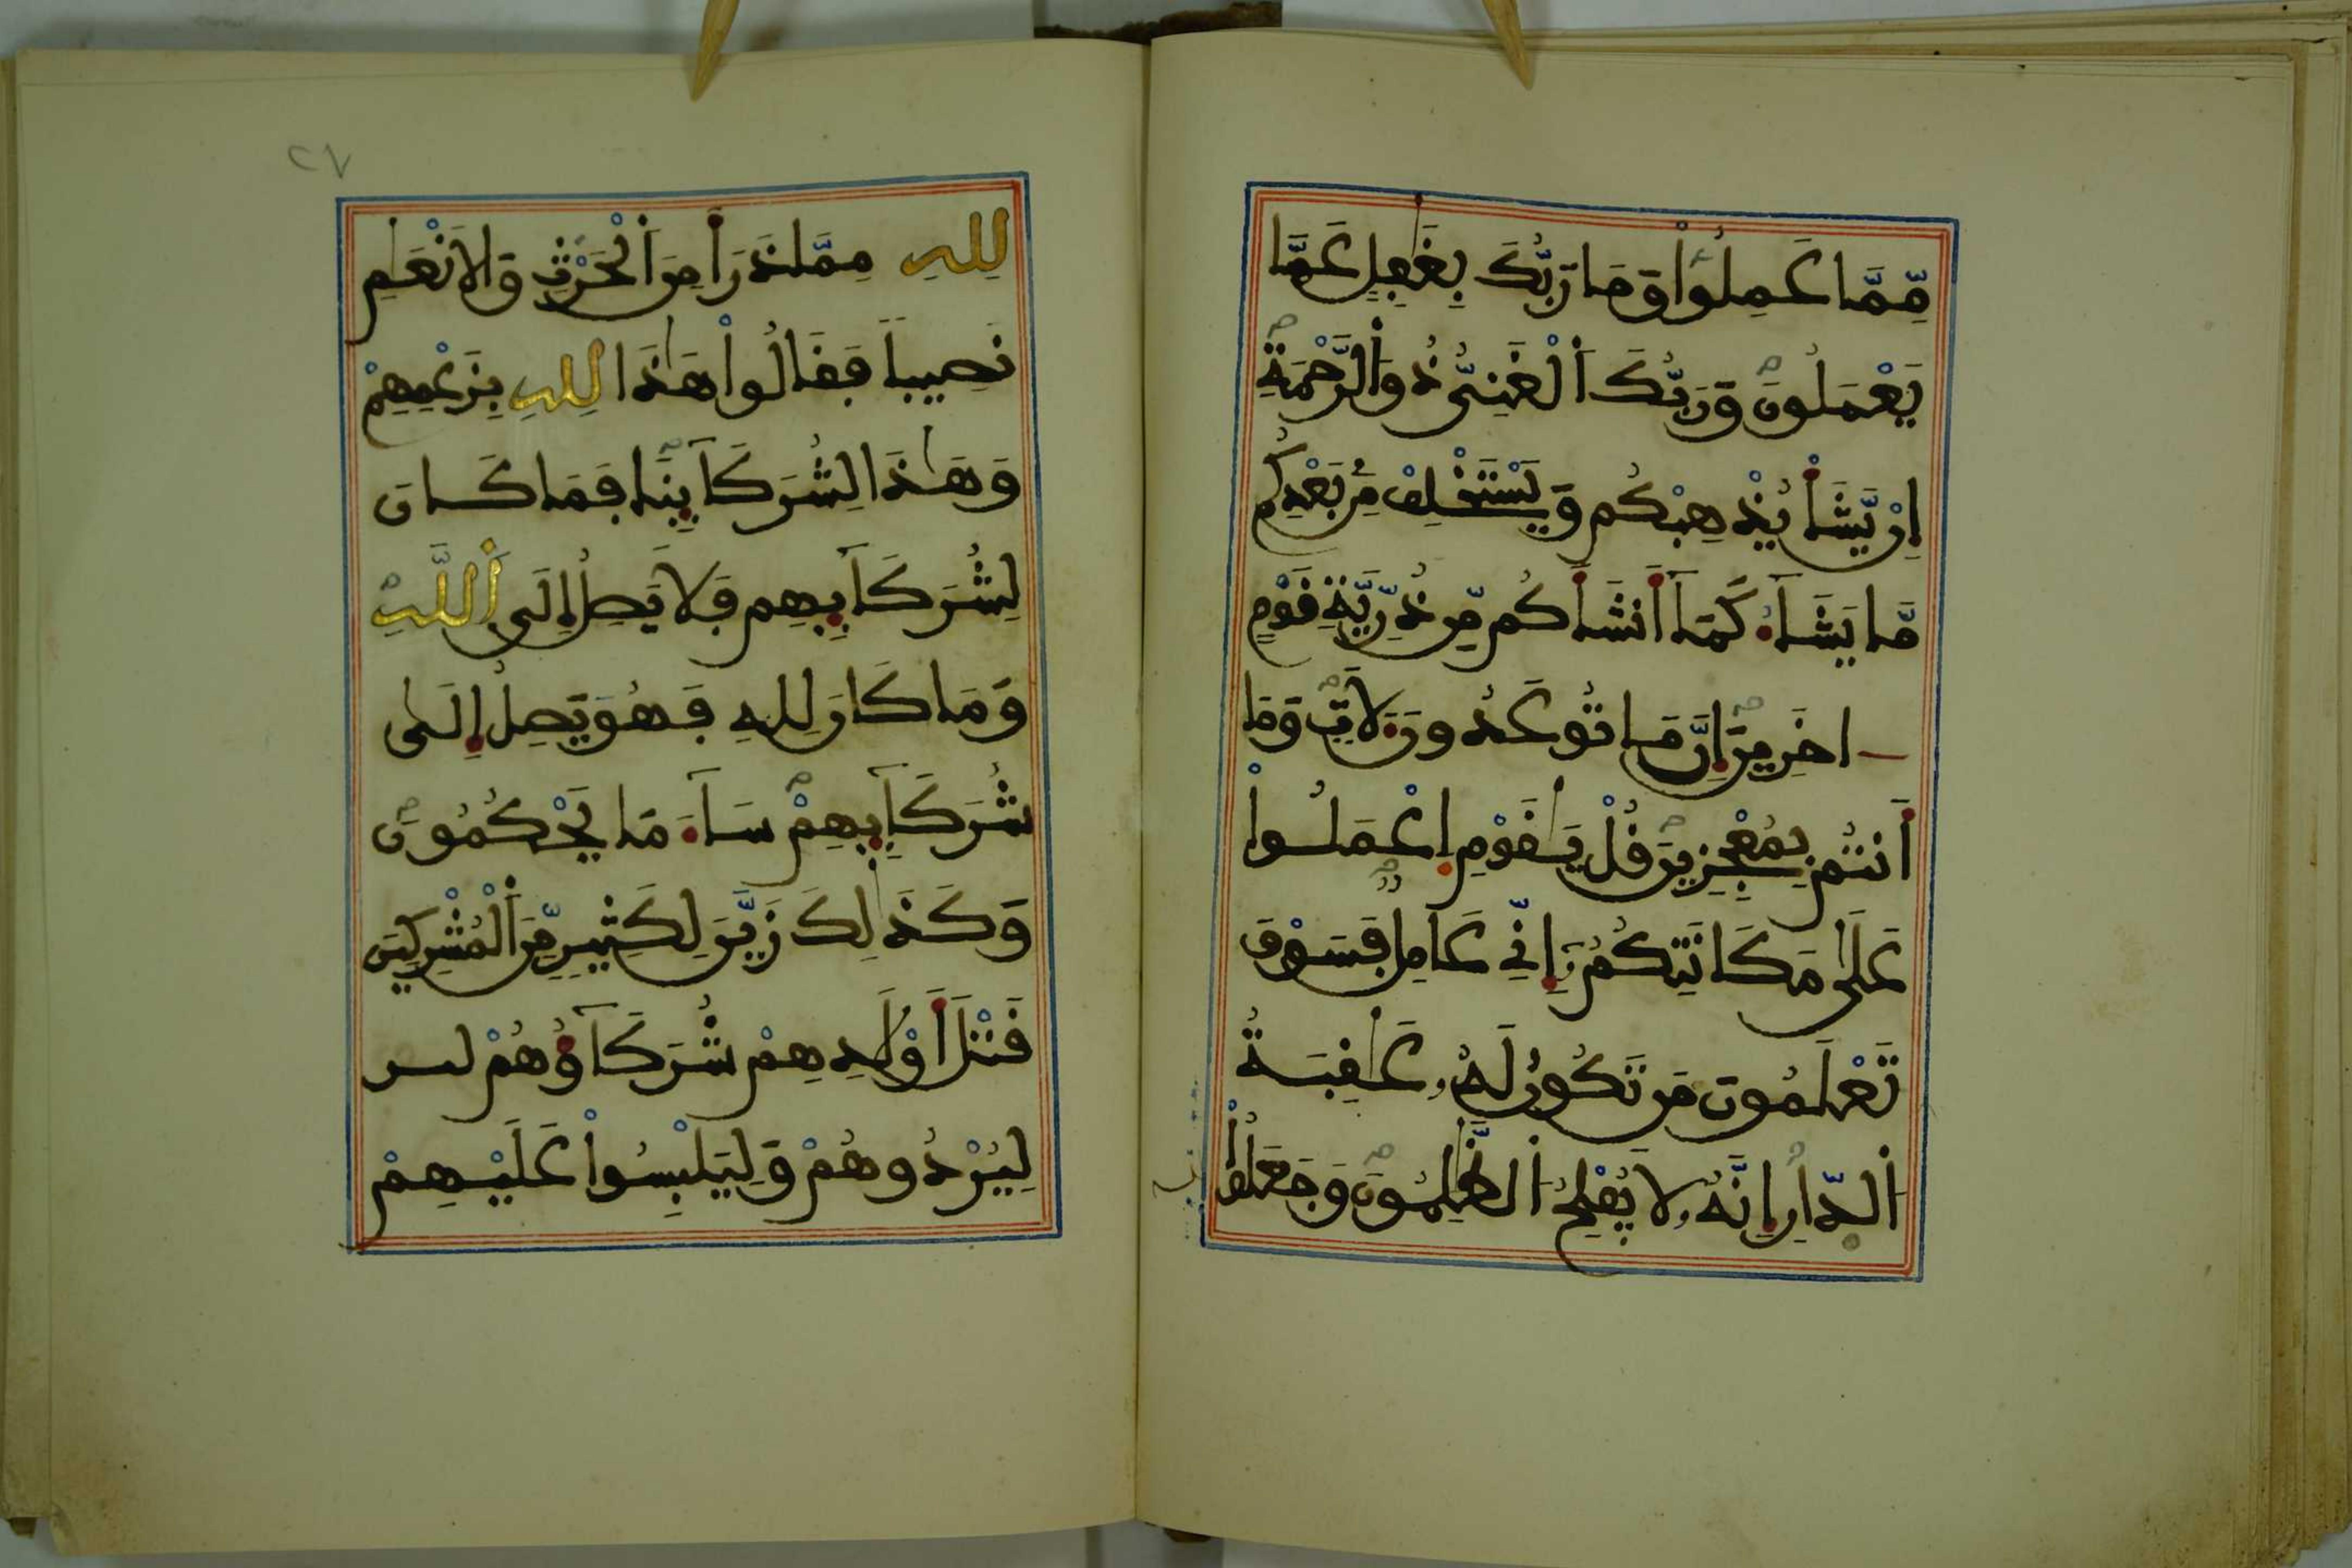 مِّمَّا عَمِلُواْ وَمَا رَبُّكَ بِغَٰفِلٍ عَمَّا
يَعْمَلُونَ وَرَبُّكَ اَ۬لْغَنِيُّ ذُو اُ۬لرَّحْمَةِ
إِنْ يَّشَأْ يُذْهِبْكُمْ وَيَسْتَخْلِفْ مِنۢ بَعْدِكُم
مَّا يَشَآءُ كَمَآ أَنشَأَكُم مِّن ذُرِّيَّةِ قَوْمٍ
اخَرِينَ إِنَّ مَا تُوعَدُونَ لَأٓتٖ وَمَآ
أَنتُم بِمُعْجِزِينَ قُلْ يَٰقَوْمِ اِ۪عْمَلُواْ
عَلَىٰ مَكَانَتِكُمُۥٓ إِنِّي عَامِلٌ فَسَوْفَ
تَعْلَمُونَ مَن تَكُونُ لَهُۥ عَٰقِبَةُ
اُ۬لدّ۪ارِ إِنَّهُۥ لَا يُفْلِحُ اُ۬لظَّٰلِمُونَ وَجَعَلُواْ
٢٧
لِلهِ مِمَّا ذَرَأَ مِنَ اَ۬لْحَرْثِ وَالَانْعَٰمِ
نَصِيباٗ فَقَالُواْ هَٰذَا لِلهِ بِزَعْمِهِمْ
وَهَٰذَا لِشُرَكَآئِنَا فَمَا كَانَ
لِشُرَكَآئِهِمْ فَلَا يَصِلُ إِلَى اَ۬للَّهِ
وَمَا كَانَ لِلهِ فَهُوَ يَصِلُ إِلَىٰ
شُرَكَآئِهِمْ سَآءَ مَا يَحْكُمُونَ
وَكَذَٰلِكَ زَيَّنَ لِكَثِيرٖ مِّنَ اَ۬لْمُشْرِكِينَ
قَتْلَ أَوْلَٰدِهِمْ شُرَكَآؤُهُمْ
لِيُرْدُوهُمْ وَلِيَلْبِسُواْ عَلَيْهِمْ